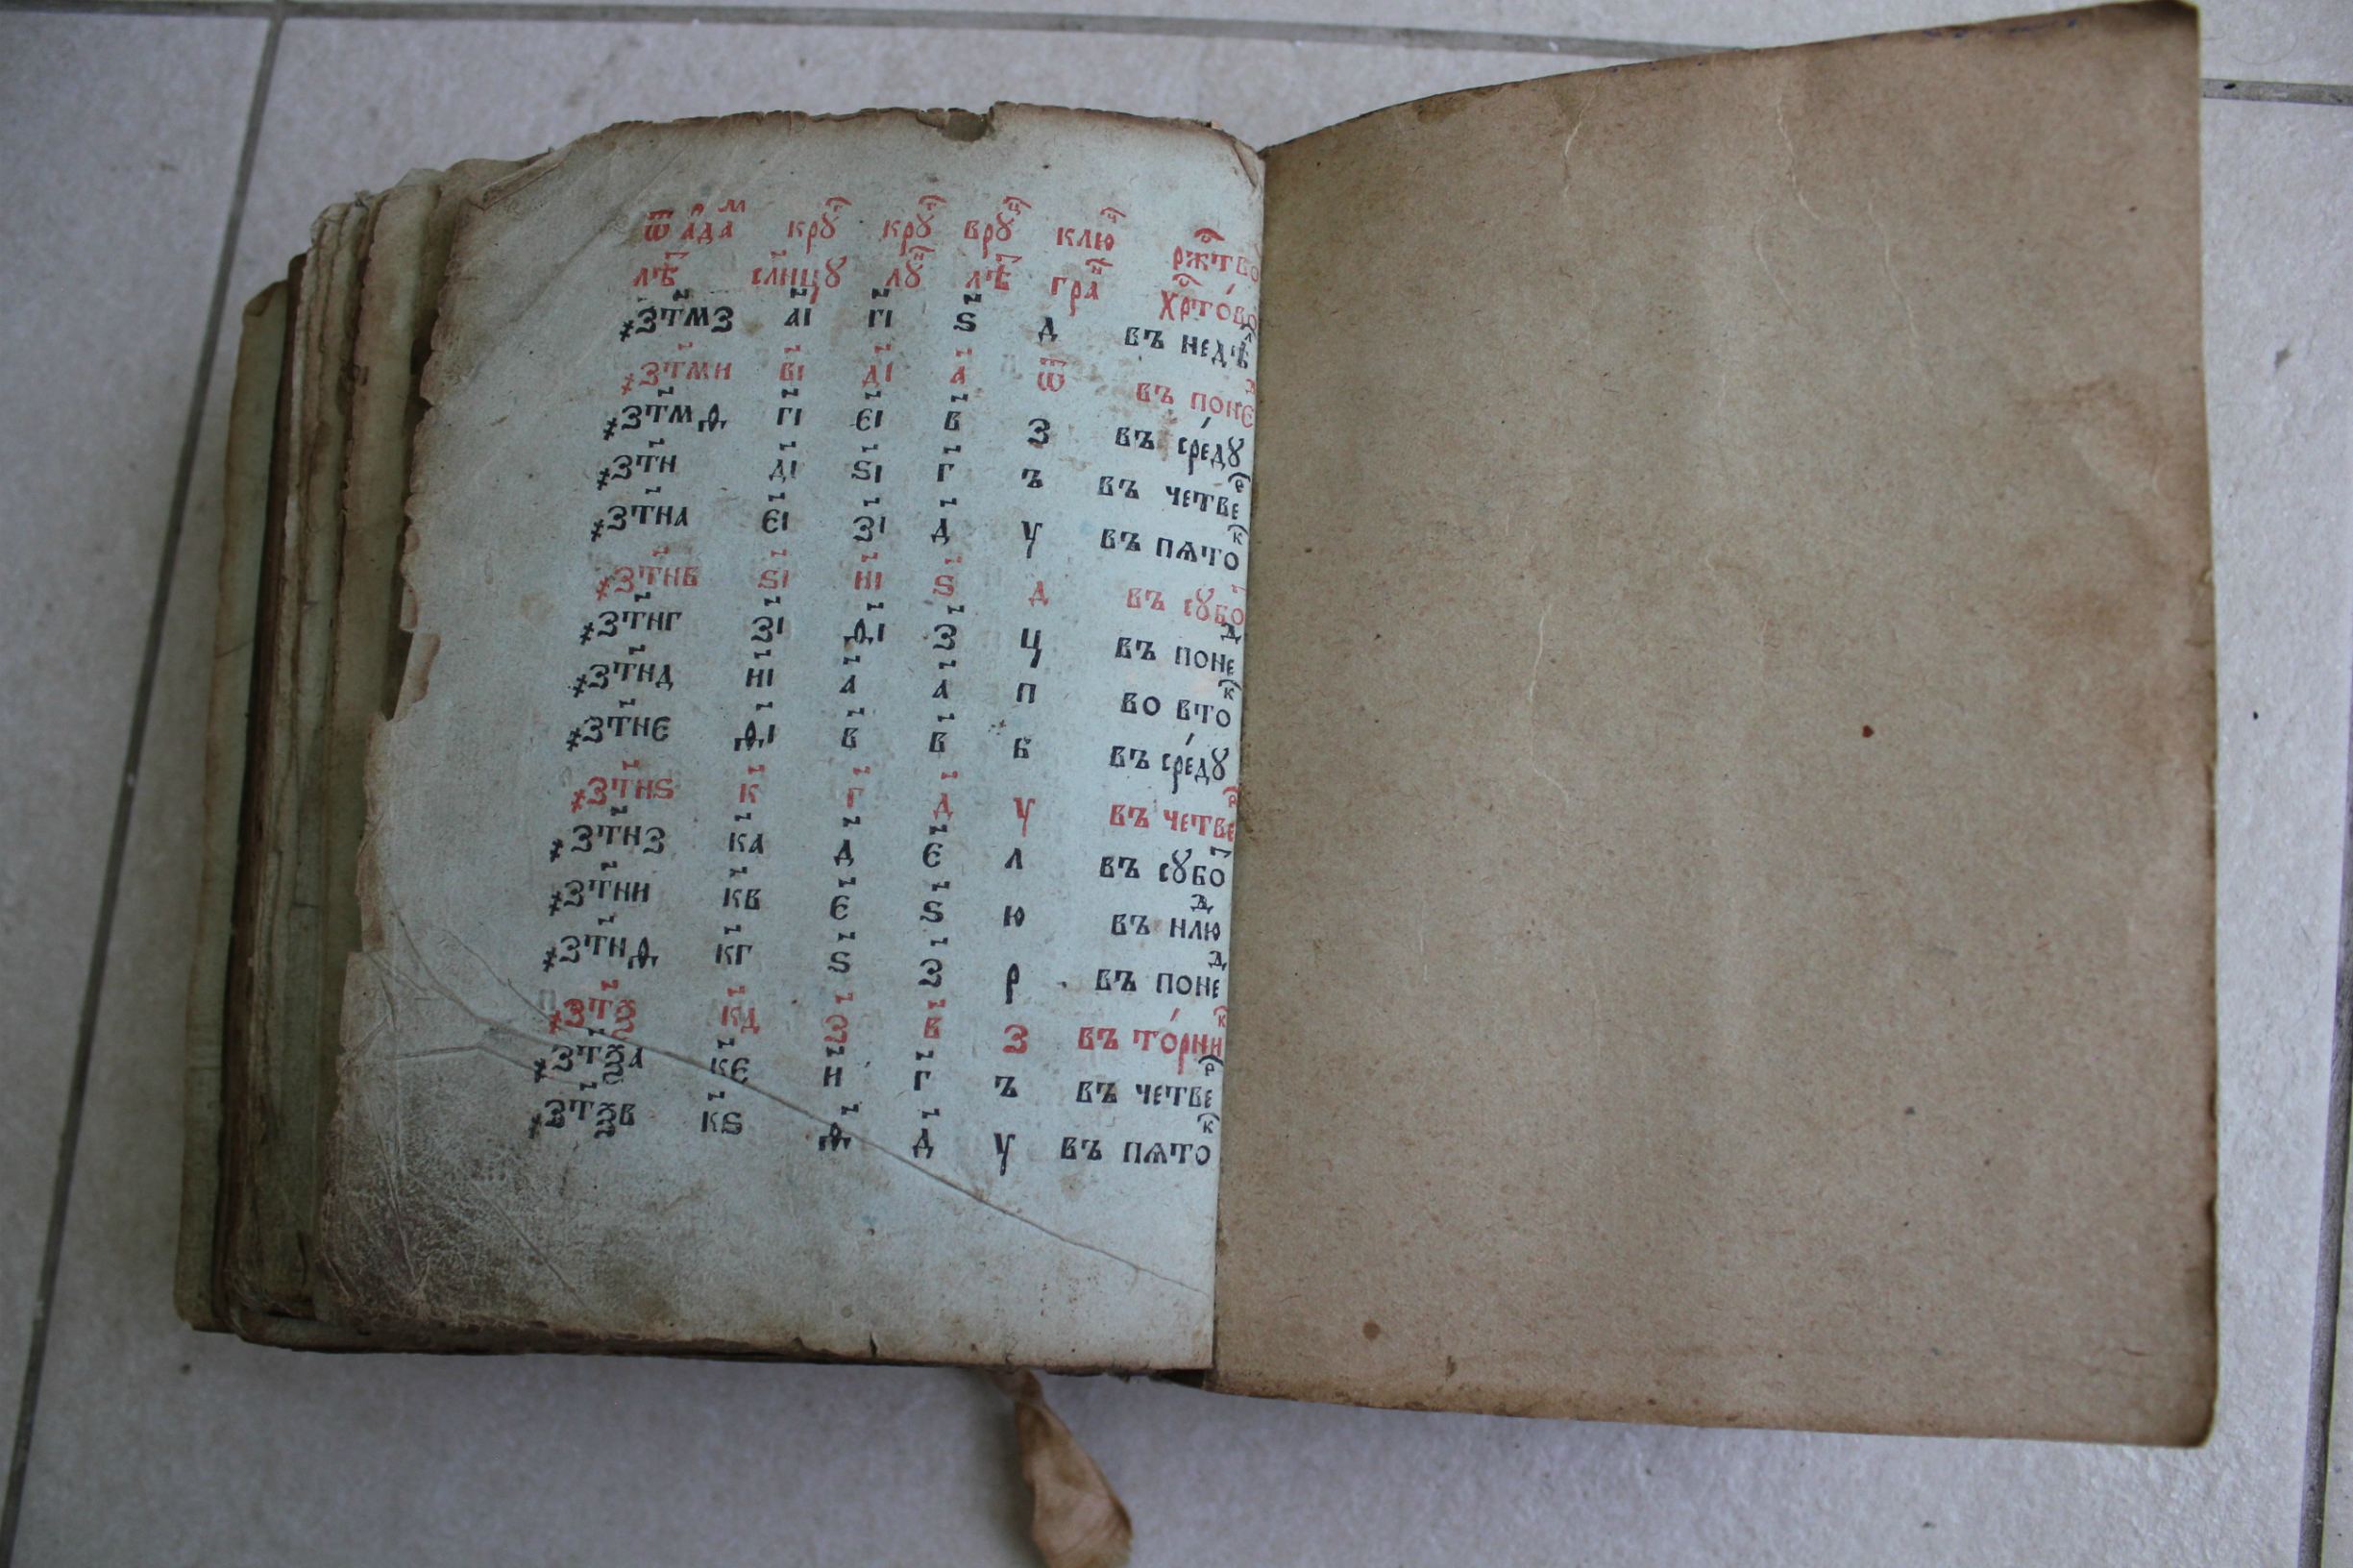 ѿ а҆да́м крꙋ́г крꙋ́г врꙋц клю́ч ржтⷭ҇во
лѣ́т сл҃нцꙋ лꙋн лѣт гра́н хрⷭ҇то́во
҂зт҃мз а҃і г҃і ѕ҃ д въ недѣⷧ
҂зт҃ми в҃і д҃і а҃ ѿ въ понеⷣ
҂зт҃мѳ г҃і є҃і в҃ з въ сре́дꙋ
҂зт҃н д҃і ѕ҃і г҃ ъ въ четвеⷬ
҂зт҃на є҃і з҃і д҃ у въ пѧтоⷦ
҂зт҃нв ѕ҃і и҃і ѕ҃ д въ сꙋбоⷮ
҂зт҃нг з҃і ѳ҃і з҃ ц въ понеⷣ
҂зт҃нд и҃і а҃ а҃ п во втоⷦ
҂зт҃нє ѳ҃і в҃ в҃ б въ сре́дꙋ
҂зт҃нѕ к҃ г҃ д҃ у въ четвеⷬ
҂зт҃нз к҃а д҃ є҃ л въ сꙋбоⷮ
҂зт҃ни к҃в є҃ ѕ҃ ю въ нⷣлю
҂зт҃нѳ к҃г ѕ҃ з҃ р въ понеⷣ
҂зт҃ѯ к҃д з҃ в҃ з въ то́рниⷦ
҂зт҃ѯа к҃є и҃ г҃ ъ въ четвеⷬ
҂зт҃ѯв к҃ѕ ѳ҃ д҃ у въ пѧтоⷦ